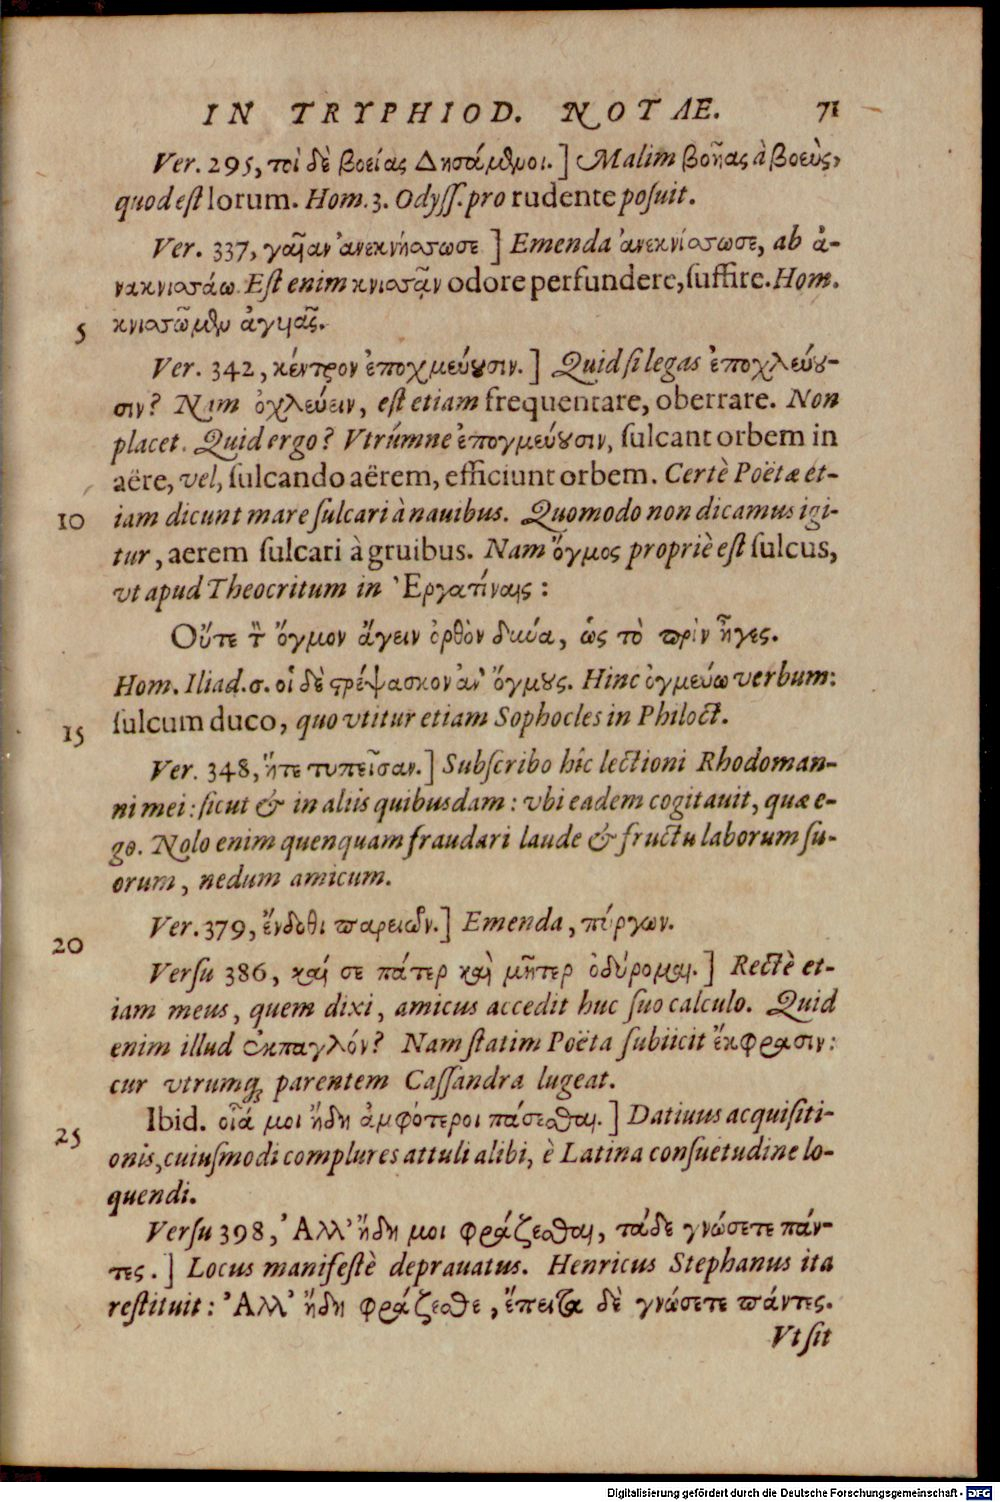 IN TRYPHIOD. NOTAE. 71
Ver. 295, τοὶ δὲ βοείας Δησάμενοι.] Malim βοῆας à βοεὺς,
quod est lorum. Hom. 3. Odyss. pro rudente posuit.
Ver. 337, γαῖαν ἀνεκνήσσωσε ] Emenda ἀνεκνίσσωσε, ab ἀ-
νακνισσάω. Est enim κνισσᾷν odore perfundere, suffire. Hom.
5 κνισσῶμεν ἀγυιᾶς.
Ver. 342, κέντρον ἐποχμεύουσιν.] Quid si legas ἐποχλεύου-
σιν? Nam ὀχλεύειν, est etiam frequentare, oberrare. Non
placet. Quid ergo? Vtrúmne ἐπογμεύουσιν, sulcant orbem in
aëre, vel, sulcando aërem, efficiunt orbem. Certè Poëtæ et-
10 iam dicunt mare sulcari à nauibus. Quomodo non dicamus igi-
tur, aerem sulcari à gruibus. Nam ὄγμος propriè est sulcus,
vt apud Theocritum in Ἐργατίναις:
Οὔτε τὸν ὄγμον ἄγειν ὀρθὸν δύνᾳ, ὡς τὸ πρὶν ἦγες.
Hom. Iliad. σ. οἱ δὲ στρέψασκον ἀν' ὄγμους. Hinc ὀγμεύω verbum:
15 sulcum duco, quo vtitur etiam Sophocles in Philoct.
Ver. 348, ἥτε τυπεῖσαν.] Subscribo hîc lectioni Rhodoman-
ni mei: sicut & in aliis quibusdam: vbi eadem cogitauit, quæ e-
go. Nolo enim quenquam fraudari laude & fructu laborum su-
orum, nedum amicum.
20 Ver. 379, ἔνδοθι παρειῶν.] Emenda, πύργων.
Versu 386, καί σε πάτερ καὶ μῆτερ ὀδύρομαι.] Rectè et-
iam meus, quem dixi, amicus accedit huc suo calculo. Quid
enim illud ἐκπαγλόν? Nam statim Poëta subiicit ἔκφρασιν:
cur vtrumq; parentem Cassandra lugeat.
25 Ibid. οἷά μοι ἤδη ἀμφότεροι πάσεσθαι.] Datiuus acquisiti-
onis, cuiusmodi complures attuli alibi, è Latina consuetudine lo-
quendi.
Versu 398, Ἀλλ' ἤδη μοι φράζεσθαι, τάδε γνώσετε πάν-
τες.] Locus manifestè deprauatus. Henricus Stephanus ita
restituit: Ἀλλ' ἤδη φράζεσθε, ἔπειτα δὲ γνώσετε πάντες.
Vt sit
Digitalisierung gefördert durch die Deutsche Forschungsgemeinschaft - DFG